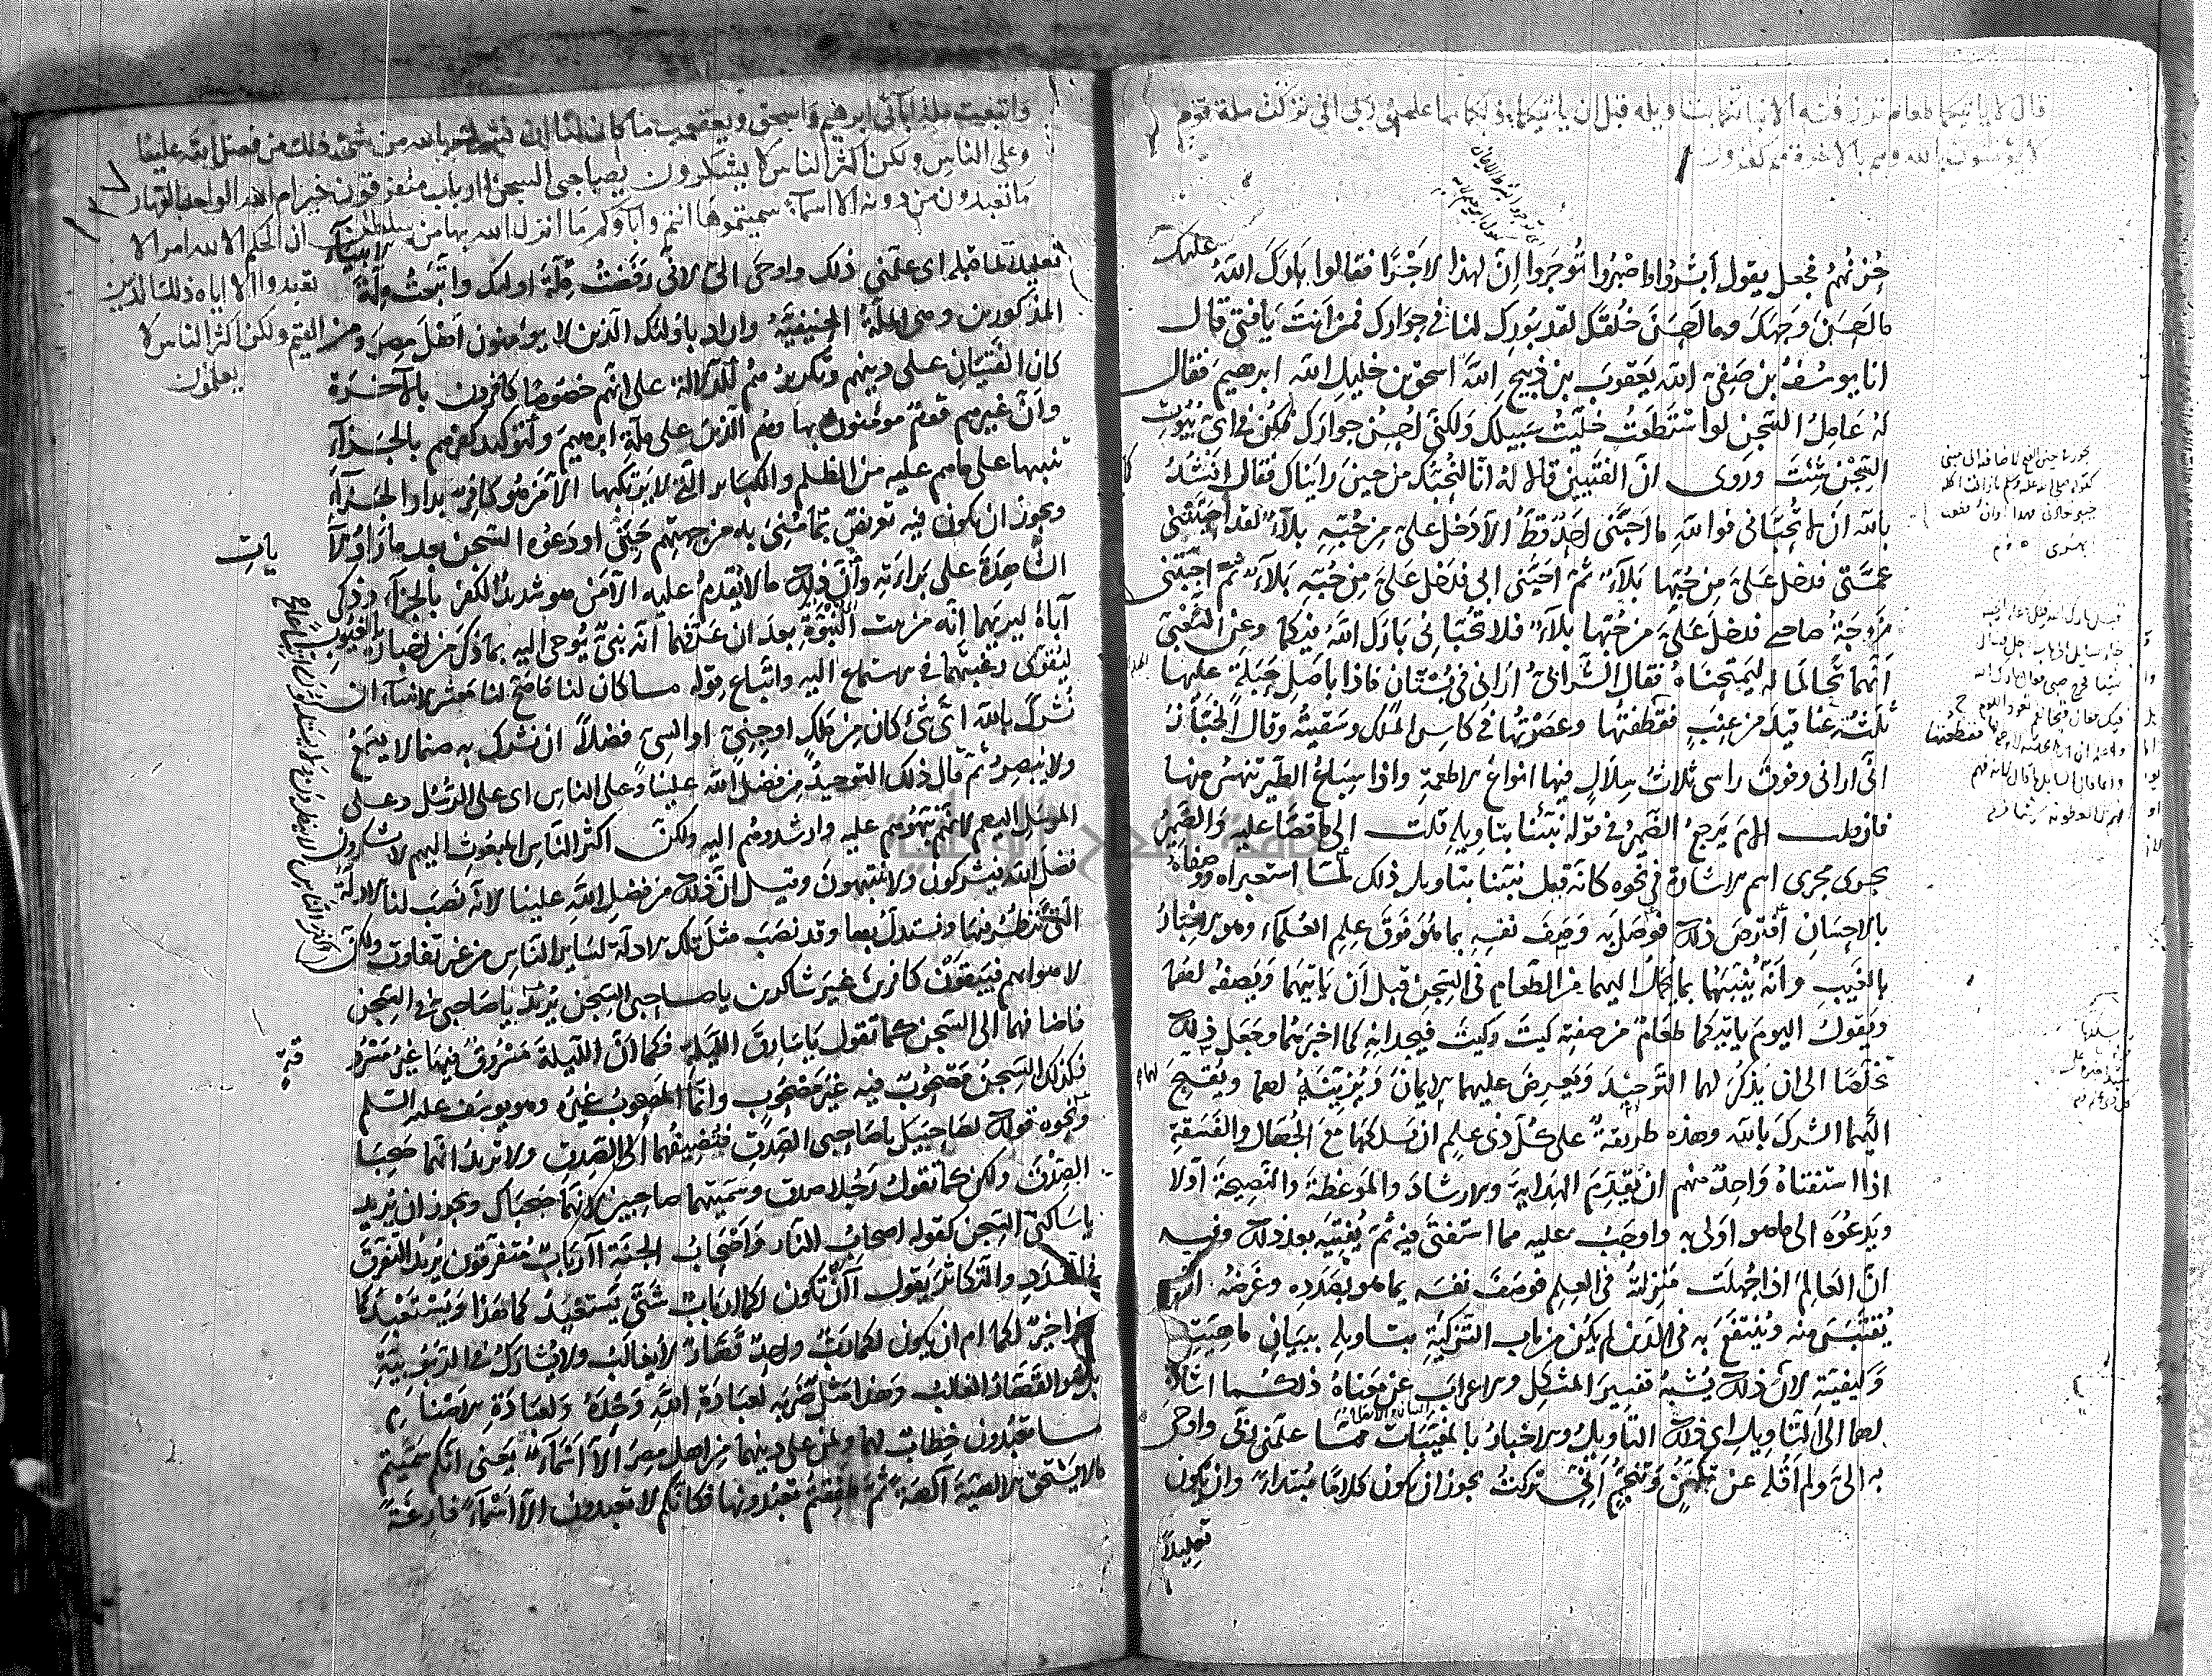 قال لا ياتيكما طعام ترزقنه الا نباتكما بتاويله قبل ان ياتيكما ذلكما مما علمني ربي اني تركت ملة قوم
لا يؤمنون بالله وهم بالاخرة هم كفرون
عليك
حزنهم فجعل يقول أبشروا واصبروا تؤجروا إن لهذا لأجرًا فقالوا بارك الله
ما احسن وجهك وما احسن خلقك لقد بورك لنا في جوارك فمن انت يا فتى قال
انا يوسف بن صفي الله يعقوب بن ذبيح الله اسحق بن خليل الله ابرهيم فقال
له عامل السجن لو استطعت خليت سبيلك ولكني احسن جوارك فكن في أي بيوت
السجن شئت وروى ان الفتيين قالا له انا لنحبك من حين رايناك فقال انشدكما
بالله ان لا تحباني فوالله ما احبني احد قط الا دخل علي من حبه بلاء لقد احبتني
عمتي فدخل علي من حبها بلاء ثم احبني ابي فدخل علي من حبه بلاء ثم احبتني
زوجة صاحبي فدخل علي من حبها بلاء فلا تحباني بارك الله فيكما وعن الشعبي
انهما تحالما له ليمتحناه فقال الشرابي اراني في بستان فاذا باصل حبلة عليها
ثلثة عناقيد من عنب فقطفتها وعصرتها في كاس الملك وسقيته وقال الخباز
اني اراني وفوق راسي ثلاث سلال فيها انواع الاطعمة واذا سباع الطير تنهش منها
فان قلت الام يرجع الضمير في قوله نبئنا بتاويله قلت الى ما قصا عليه والضمير
يجري مجرى اسم الاشارة في نحوه كانه قيل نبئنا بتاويل ذلك لما استعبراه ووصفاه
بالاحسان افترص ذلك فوصل به وصف نفسه بما هو فوق علم العلماء وهو الاخبار
بالغيب وانه ينبئهما بما يحمل اليهما من الطعام في السجن قبل ان ياتيهما ويصفه لهما
ويقول اليوم ياتيكما طعام من صفته كيت وكيت فيجدانه كما اخبرهما وجعل ذلك
تخلصا الى ان يذكر لهما التوحيد ويعرض عليهما الايمان ويزينه لهما ويقبح
اليهما الشرك بالله وهذه طريقة على كل ذي علم ان يسلكها مع الجهال والفسقة
اذا استفتاه واحد منهم ان يقدم الهداية والارشاد والموعظة والنصيحة اولا
ويدعوه الى ما هو اولى به واوجب عليه مما استفتى فيه ثم يفتيه بعد ذلك وفيه
ان العالم اذا جهلت منزلته في العلم فوصف نفسه بما هو بصدده وغرضه ان
يقتبس منه وينتفع به في الدين لم يكن من باب التزكية بتاويله ببيان ماهيته
وكيفيته لان ذلك يشبه تفسير المشكل والاعراب عن معناه ذلكما اشارة
لهما الى التاويل اي ذلك التاويل والاخبار بالمغيبات مما علمني ربي واوحى
به الي ولم اقله عن تكهن وتنجم اني تركت يجوز ان يكون كلاما مبتدا وان يكون
تعليلا
واتبعت ملة آبائي ابرهيم واسحق ويعقوب ما كان لنا ان نشرك بالله من شيء ذلك من فضل الله علينا
وعلى الناس ولكن اكثر الناس لا يشكرون يصاحبي السجن ءارباب متفرقون خير ام الله الواحد القهار
ما تعبدون من دونه الا اسماء سميتموها انتم وآباؤكم ما انزل الله بها من سلطان ان الحكم الا لله امر الا
تعبدوا الا اياه ذلك الدين
القيم ولكن اكثر الناس لا
يعلمون
تعليلا لما قبله اي علمني ذلك واوحى الي لاني رفضت ملة اولئك واتبعت ملة الانبياء
المذكورين وهي الملة الحنيفية واراد باولئك الذين لا يؤمنون اهل مصر ومن
كان الفتيان على دينهم وتكرير هم للدلالة على انهم خصوصا كافرون بالآخرة
وان غيرهم قوم مؤمنون بها وهم الذين على ملة ابرهيم ولتوكيد كفرهم بالجزاء
تنبيها على ما هم عليه من الظلم والكبائر التي لا يرتكبها الا من هو كافر بدار الجزاء
ويجوز ان يكون فيه تعريض بما مني به من جهتهم حين اودعوه السجن بعد ما راوا الآيات
الشاهدة على براءته وان ذلك ما لا يقدم عليه الا من هو شديد الكفر بالجزاء وذكر
آباءه ليريهما انه من بيت النبوة بعد ان عرفهما انه نبي يوحى اليه بما ذكر من اخباره بالغيوب
ليقوي رغبتهما في الاستماع اليه واتباع قوله ما كان لنا ما صح لنا معشر الانبياء ان
نشرك بالله اي شيء كان من ملك او جني او انسي فضلا ان نشرك به صنما لا يسمع
ولا يبصر ثم قال ذلك التوحيد من فضل الله علينا وعلى الناس اي على الرسل وعلى
المرسل اليهم لانهم نبهوهم عليه وارشدوهم اليه ولكن اكثر الناس المبعوث اليهم لا يشكرون
فضل الله فيشركون ولا ينتبهون وقيل ان ذلك من فضل الله علينا لانه نصب لنا الادلة
التي ننظر فيها ونستدل بها وقد نصب مثل تلك الادلة لسائر الناس من غير تفاوت ولكن
اكثر الناس لا ينظرون ولا يستدلون اتباعا
لاهوائهم فيبقون كافرين غير شاكرين يا صاحبي السجن يريد يا صاحبي في السجن
فاضافهما الى السجن كما تقول يا سارق الليلة فكما ان الليلة مسروق فيها غير مسروقة
فكذلك السجن مصحوب فيه غير مصحوب وانما المصحوب غيره وهو يوسف عليه السلم
ونحوه قولك لصاحبيك يا صاحبي الصدق فتضيفهما الى الصدق ولا تريد انهما صحبا
الصدق ولكن كما تقول رجلا صدق وسميتهما صاحبين لانهما صحباك ويجوز ان يريد
يا ساكني السجن كقوله اصحاب النار واصحاب الجنة أارباب متفرقون يريد التفرق
في العدد والتكاثر يقول أان تكون لكما ارباب شتى يستعبدكما هذا ويستعبدكما
هذا خير لكما ام ان يكون لكما رب واحد قهار لا يغالب ولا يشارك في الربوبية
بل هو القهار الغالب وهذا مثل ضربه لعبادة الله وحده ولعبادة الاصنام
ما تعبدون خطاب لهما ولمن على دينهما من اهل مصر الا اسماء يعني انكم سميتم
ما لا يستحق الالهية آلهة ثم طفقتم تعبدونها فكانكم لا تعبدون الا اسماء فارغة